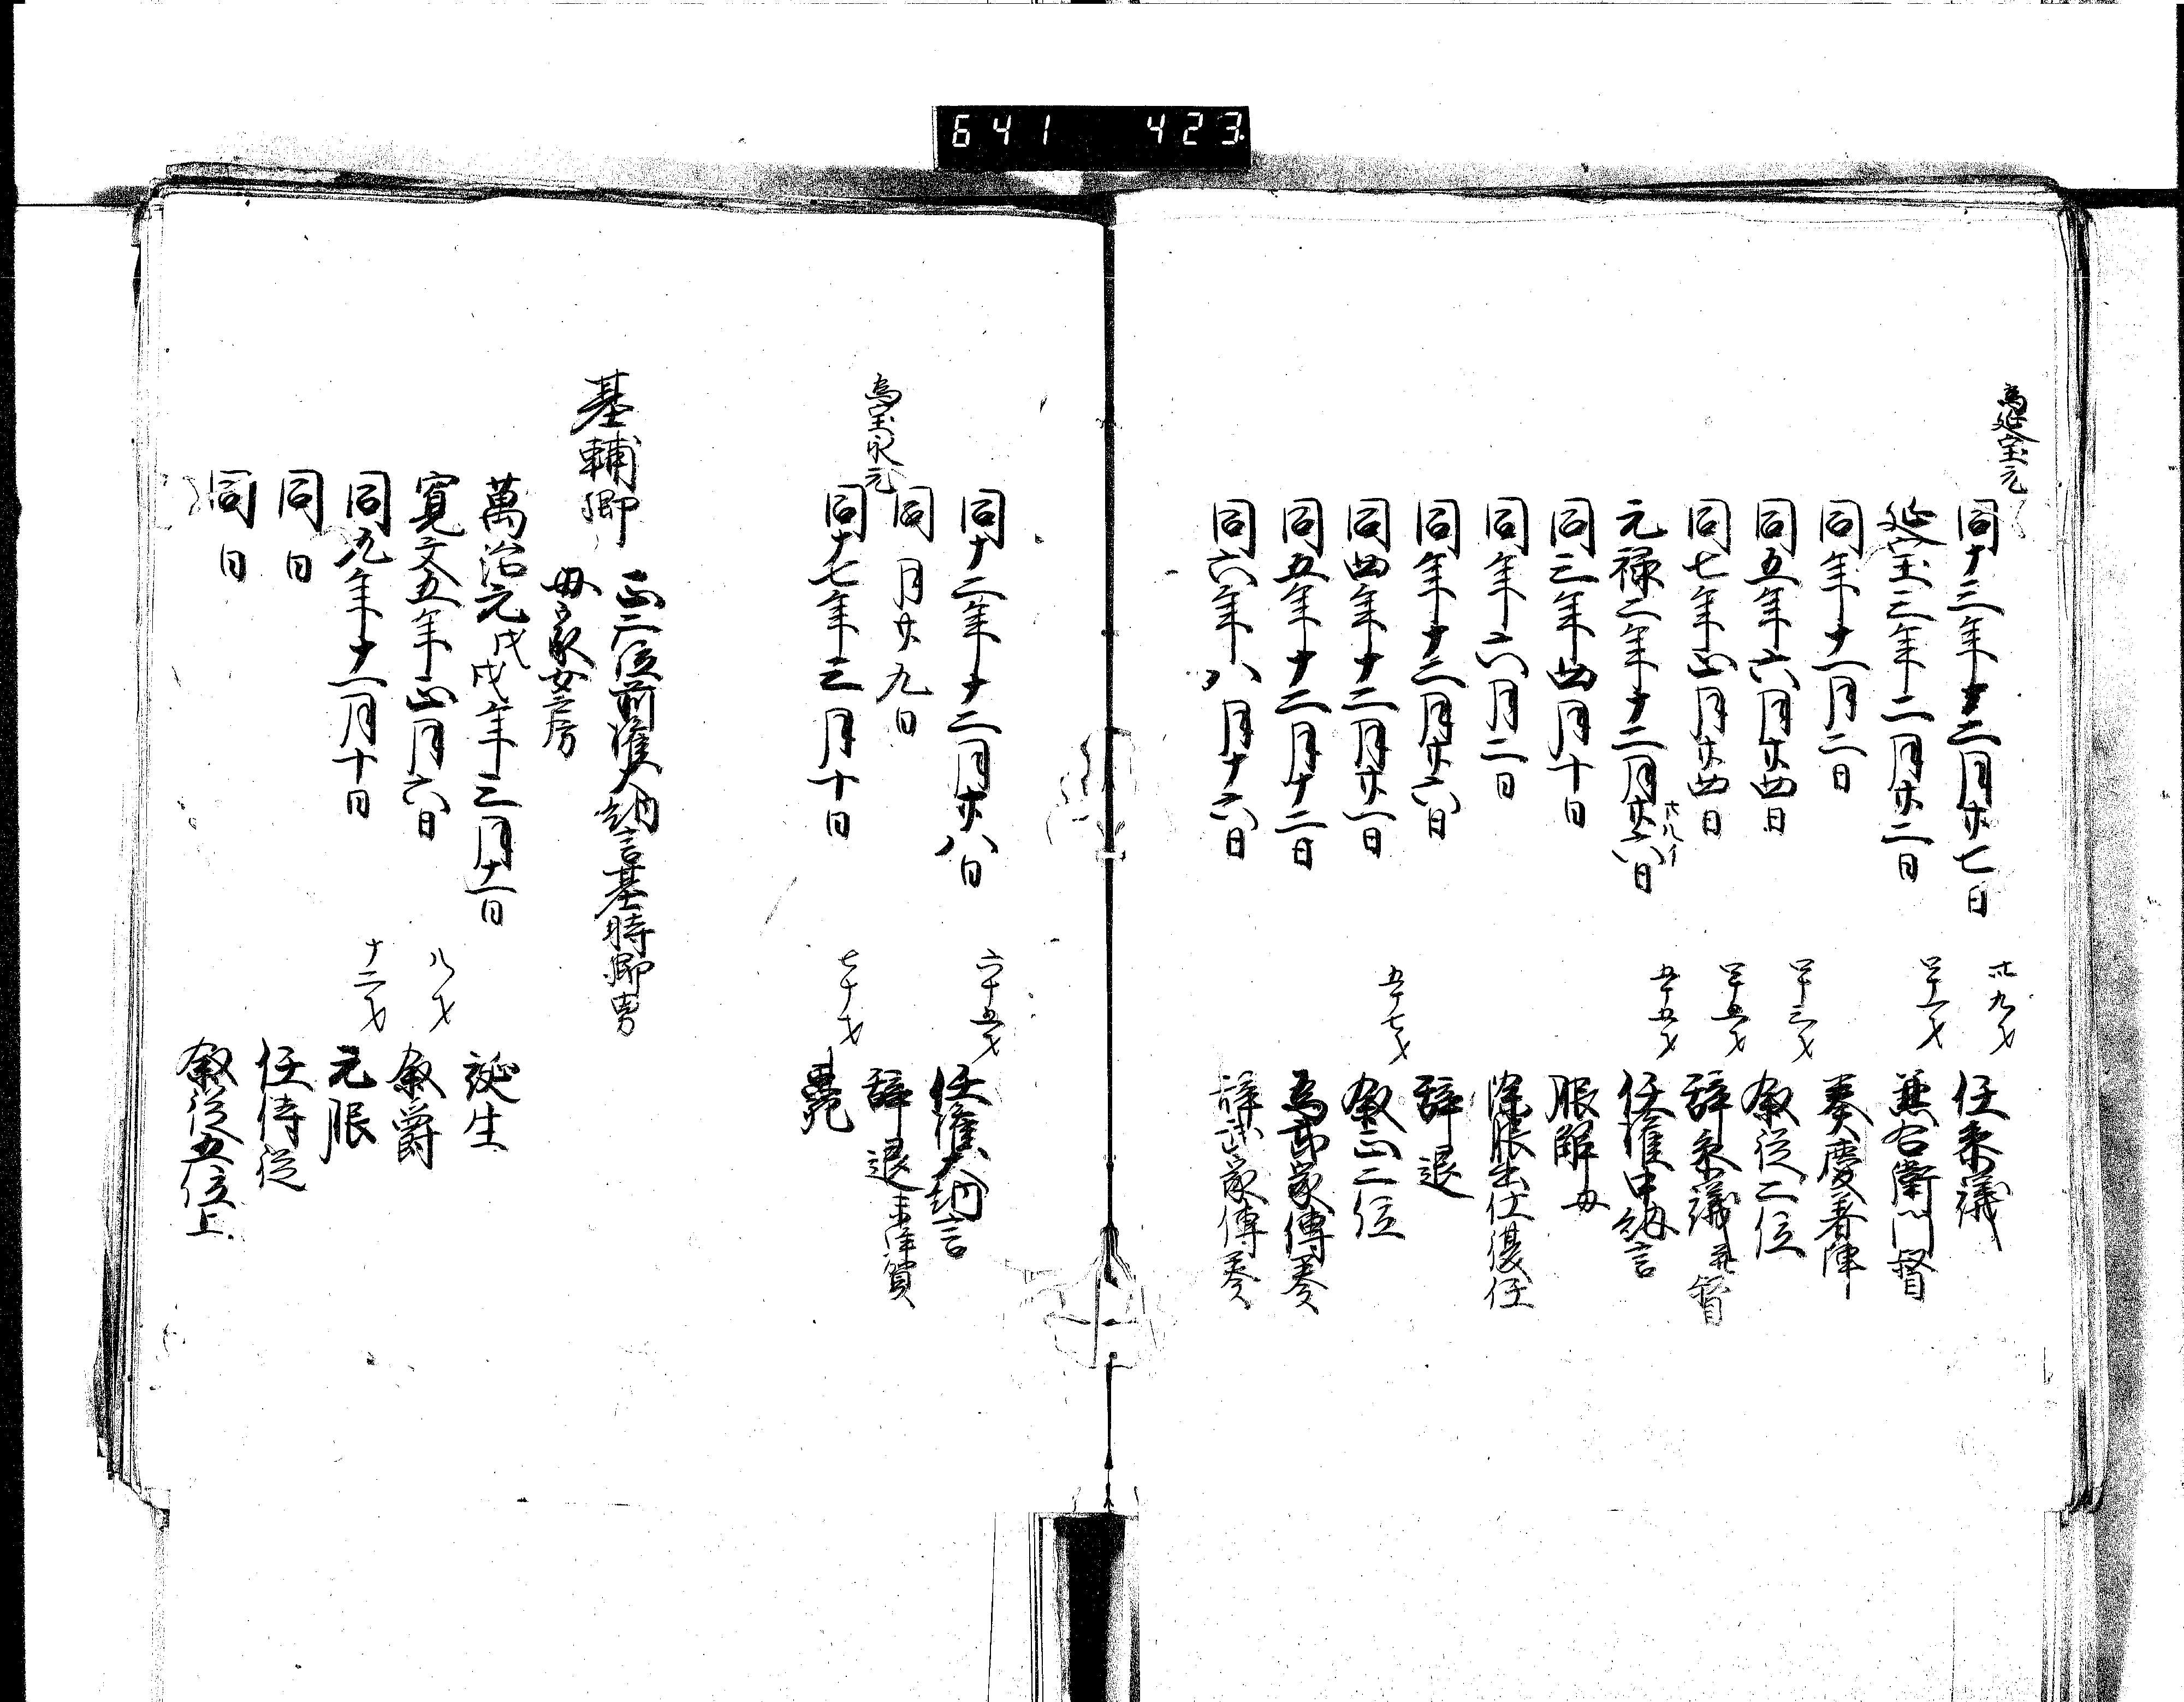 641 423
為延宝元
同十三年十二月廿七日 卅九才 任参議
延宝三年二月廿二日 四十一才 兼右衛門督
同年十一月二日 奏慶着陣
同五年六月廿四日 四十三才 叙従二位
同七年正月廿四日 四十五才 辞参議并督
元禄二年十二月廿六日 廿八イ 五十五才 任権中納言
同三年四月十日 服解母
同年六月二日 除服出仕復任
同年十二月廿六日 辞退
同四年十二月廿一日 五十七才 叙正二位
同五年十二月十二日 為武家傳奏
同六年八月十六日 辞武家傳奏
同十二年十二月廿八日 六十五才 任権大納言
同月廿九日 辞退 未拝賀
為宝永元
同十七年三月十日 七十才 薨
基輔卿 正二位前権大納言基時卿男
母家女房
萬治元戊戌年三月十一日 誕生
寛文五年正月六日 八才 叙爵
同九年十一月十日 十二才 元服
同日 任侍従
同日 叙従五位上